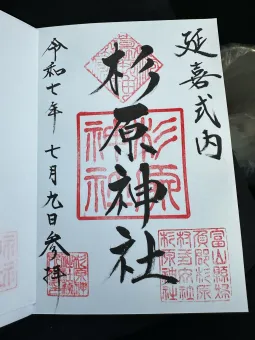 延喜式内
杉原神社
令和七年 七月九日参拝
杉原
神社
富山縣婦
負郡杉原
杉原神社